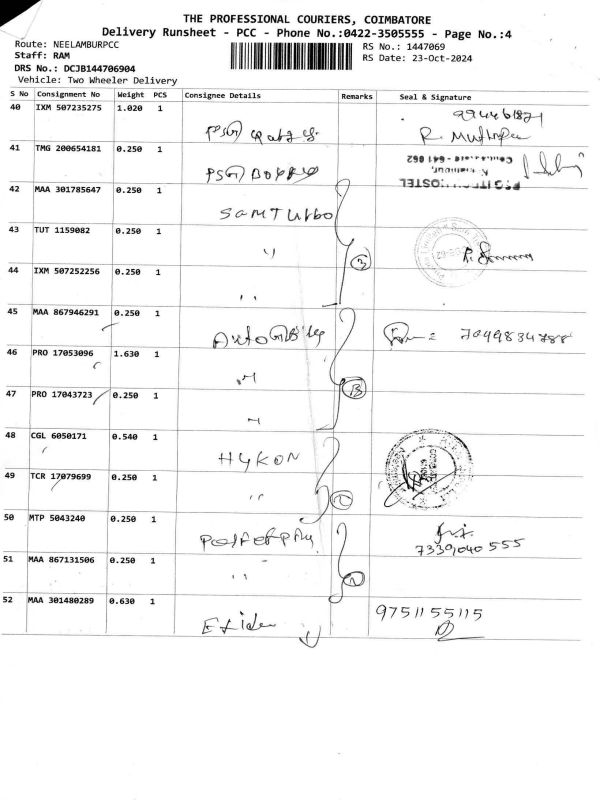 THE PROFESSIONAL COURIERS, COIMBATORE
Delivery Runsheet - PCC - Phone No.:0422-3505555 - Page No.:4
Route: NEELAMBURPCC
RS No.: 1447069
Staff: RAM
RS Date: 23-Oct-2024
DRS No.: DCJB144706904
Vehicle: Two Wheeler Delivery
S No Consignment No Weight PCS Consignee Details Remarks Seal & Signature
40 IXM 507235275 1.020 1
41 TMG 200654181 0.250 1
PSG
42 MAA 301785647 0.250 1
SamTurbo
43 TUT 1159082 0.250 1
"
44 IXM 507252256 0.250 1
" 3
45 MAA 867946291 0.250 1
7099834788
46 PRO 17053096 1.630 1
"
47 PRO 17043723 0.250 1
"
48 CGL 6050171 0.540 1
HYKON
49 TCR 17079699 0.250 1
"
50 MTP 5043240 0.250 1
7339040555
51 MAA 867131506 0.250 1
"
52 MAA 301480289 0.630 1
9751155115